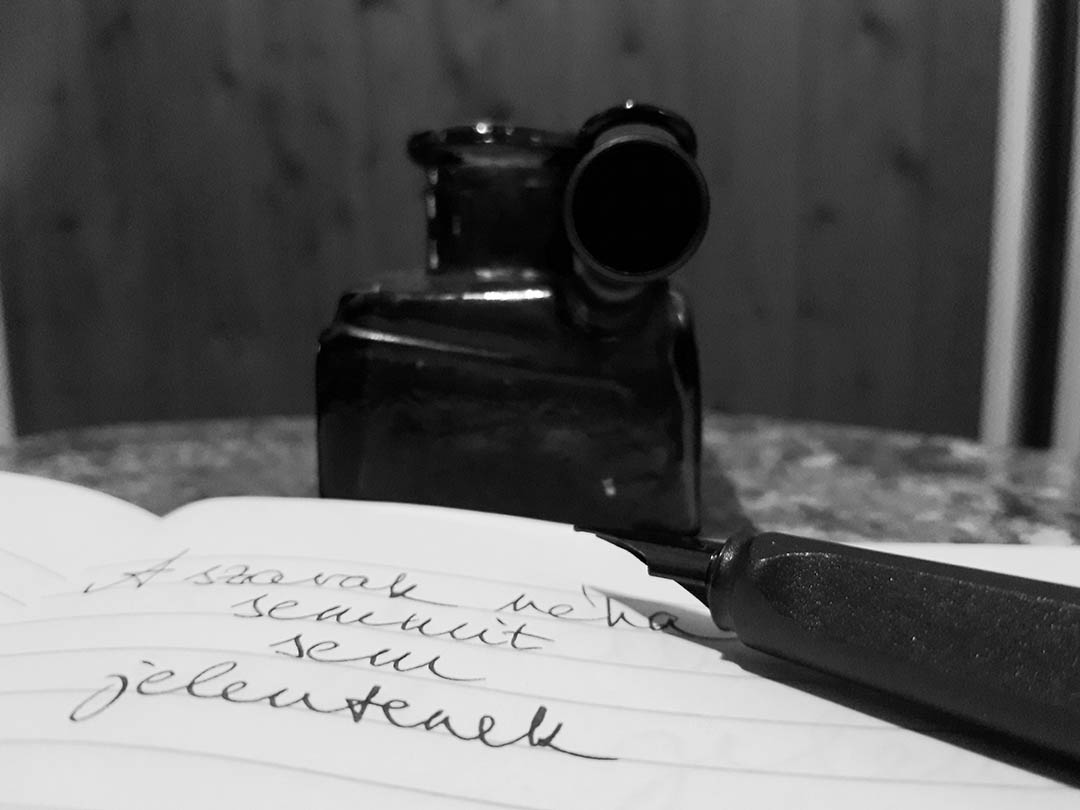 A szavak néha
semmit
sem
jelentenek